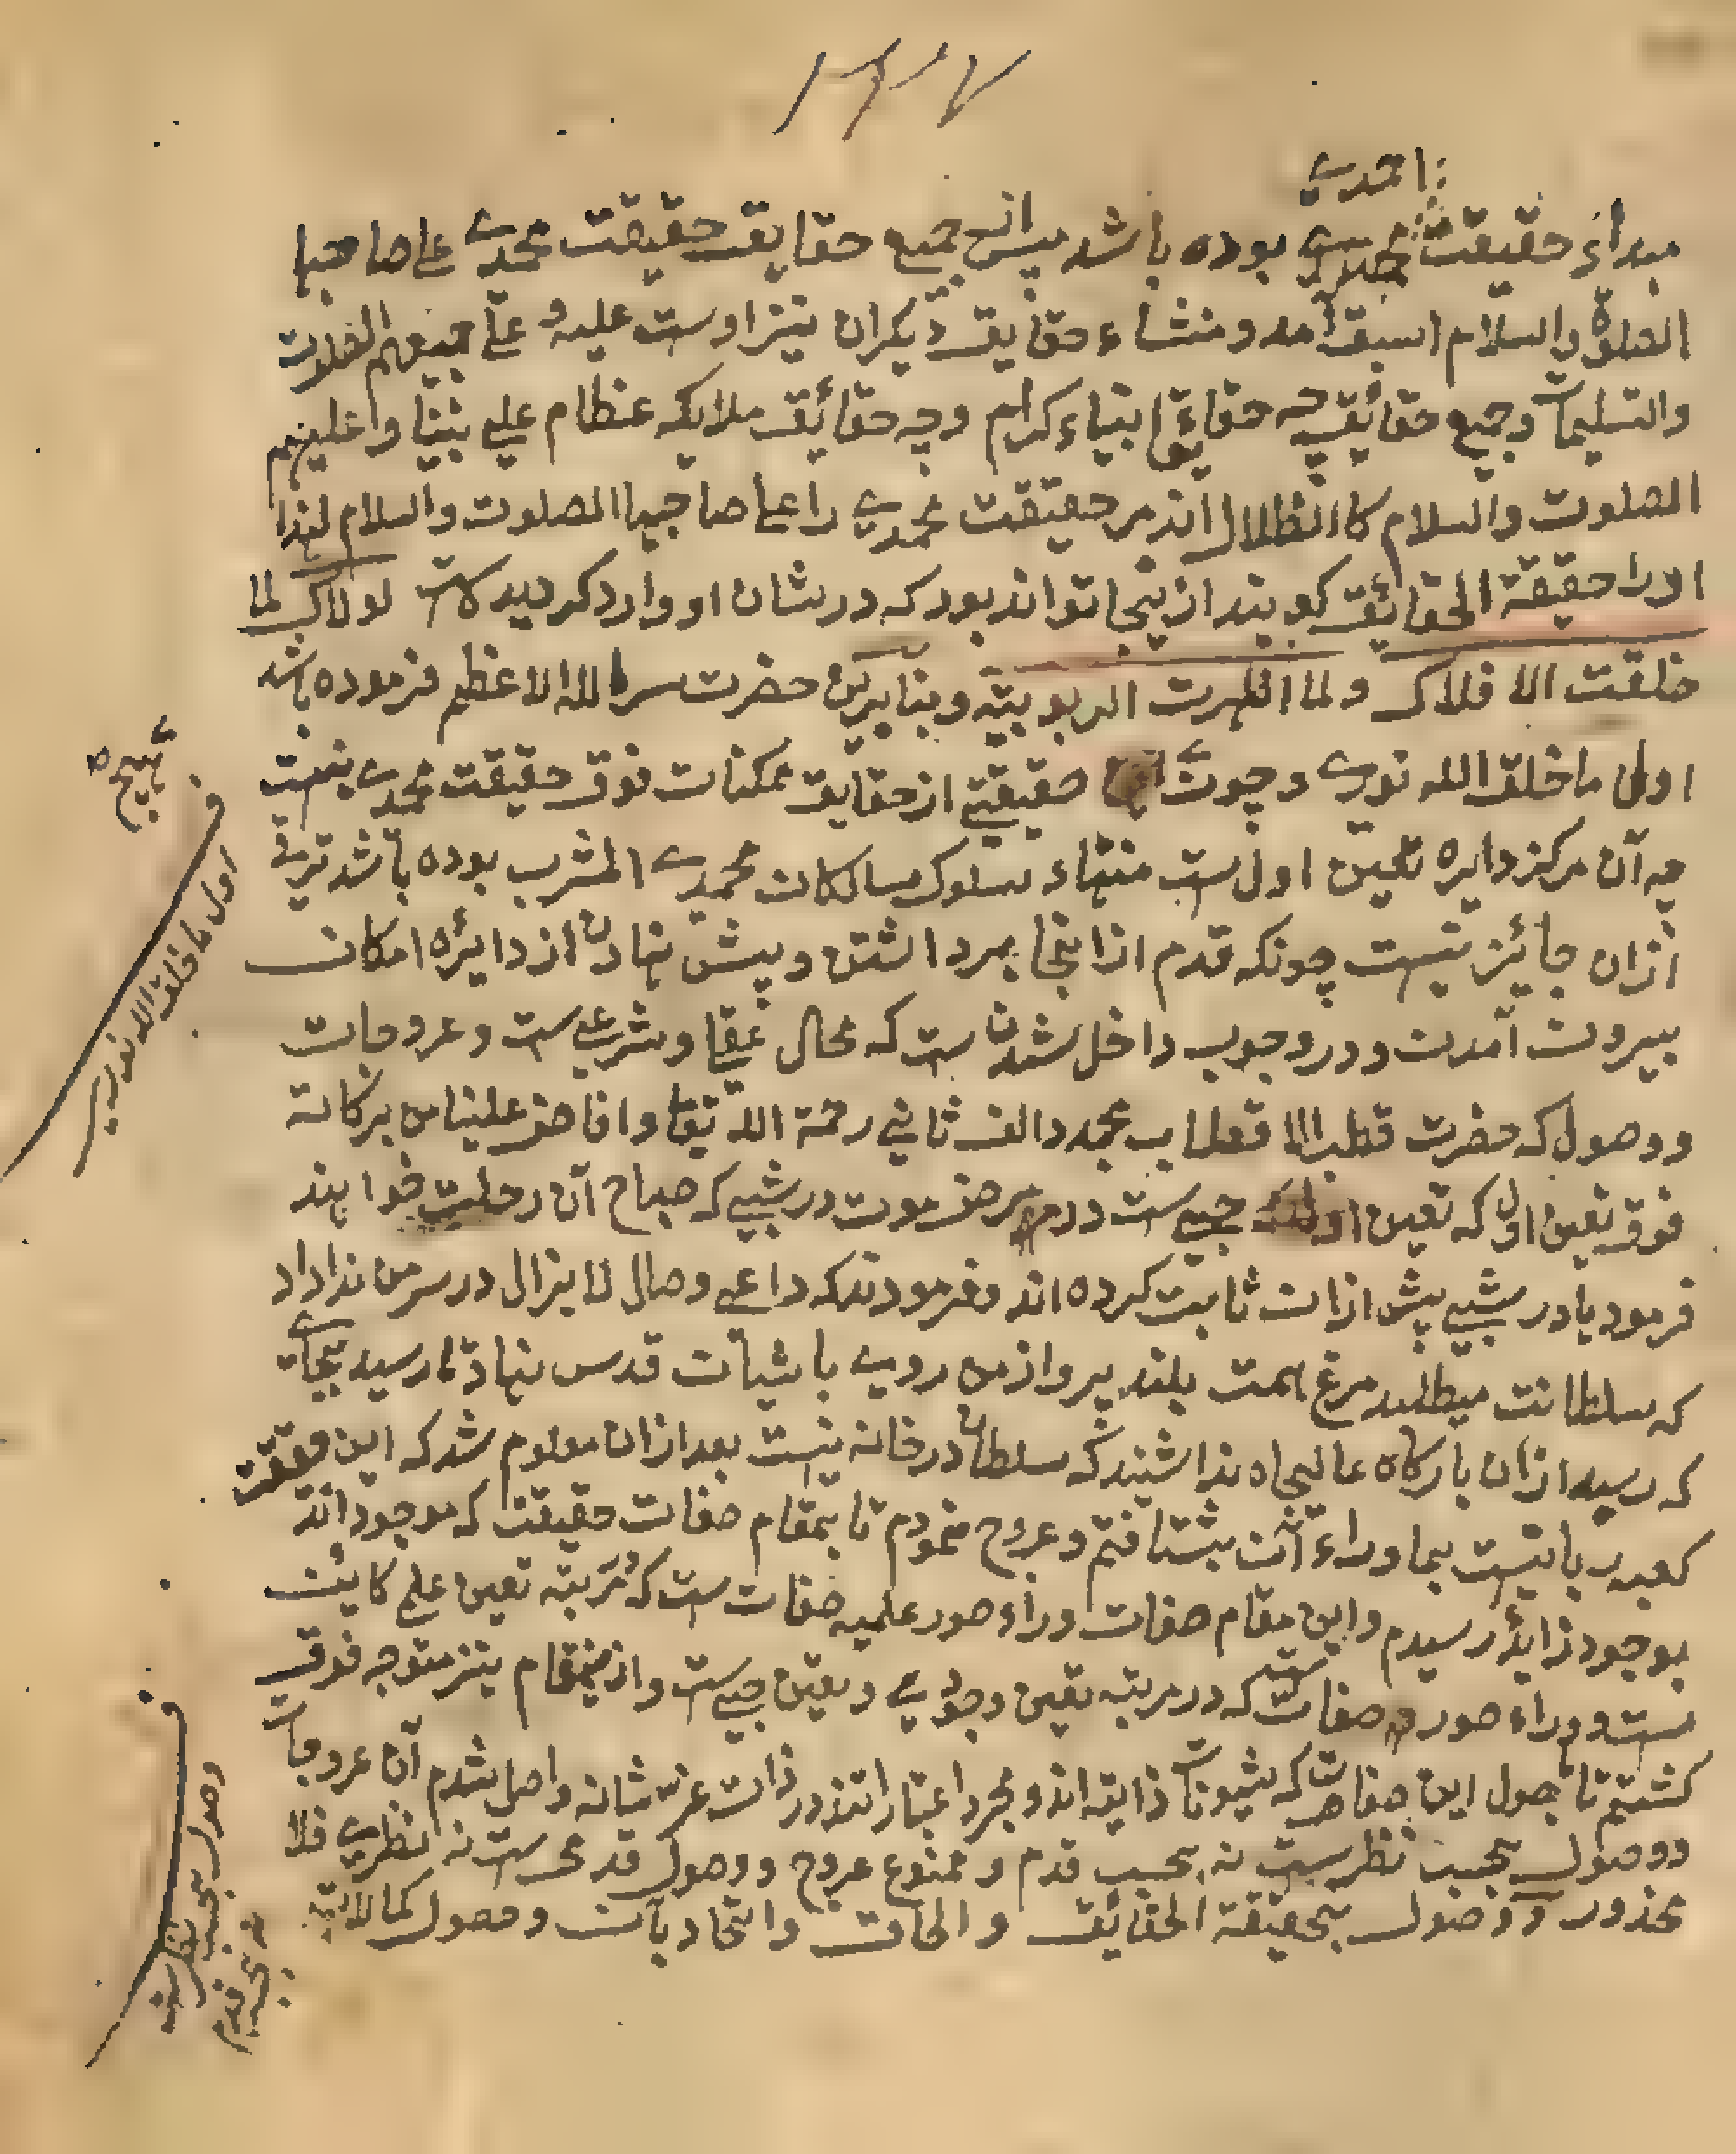 احمدی
مبداء حقیقت محمدی بوده باشد پس از جمیع حقایق حقیقت محمدی علی صاحبها
الصلوة والسلام اسبق آمد و منشاء حقایق دیگران نیز اوست علیه و علی جمیعهم الصلوت
والتسلیمات و جمیع حقائق چه حقایق انبیاء کرام و چه حقائق ملایکه عظام علی نبینا و علیهم
الصلوت والسلام کالظلال اند مر حقیقت محمدی را علی صاحبها الصلوت والسلام لهذا
او را حقیقة الحقائق کویند ازینجا تواند بود که در شان او وارد کردیدست لولاک لما
خلقت الافلاک ولما اظهرت الربوبیة و بنابرین حضرت رسول الله الاعظم فرموده باشد
اول ما خلق الله نوری و چون حقیقتی از حقایق ممکنات فوق حقیقت محمدی نیست
چه آن مرکز دایره تعین اول ست منتهاء سلوک سالکان محمدی المشرب بوده باشد ترقی
ازان جائز نیست چونکه قدم ازانجا برداشتن و پیش نهادن از دایره امکان
بیرون آمدن و در وجوب داخل شدن ست که محال عقلی و شرعی ست و عروجات
و وصول که حضرت قطب الاقطاب مجدد الف ثانی رحمة الله تعا و افاض علینا من برکاته
فوق تعین اول که تعین حبی ست در مرض موت در شبی که صباح آن رحلت خواهند
فرمود یا در شبی پیش ازان ثابت کرده اند و فرمودند که داعی وصال لا یزال در سر من ندا داد
که سلطانت میطلبد مرغ همت بلند پرواز من روی باشیان قدس نهاد تا رسید بجای
که رسید ازان بارکاه عالیجاه ندا شنید که سلطان در خانه نیست بعد ازان معلوم شد که این حقیقت
کعبه ربانیست بماوراء آن بشتافتم و عروج نمودم تا بمقام صفات حقیقت که موجود اند
بوجود زاید رسیدم و این مقام صفات وراء صور علمیه صفات ست که مرتبه تعین علمی کاین
ست و وراء صور صفات ست که در مرتبه تعین وجودی و تعین حبی ست و ازینمقام نیز متوجه فوق
کشتم تا بصول این صفات که شیونات ذاتیه اند و مجرد اعتبار اتند در ذات عز شانه واصل شدم آن عروجات
و وصول بحسب نظر ست نه بحسب قدم و ممنوع عروج و وصول قدمی ست نه نظری فلا
محذور و وصول بحقیقة الحقائق و الحاق و اتحاد بآن و حصول کمالات
اول ما خلق الله نوری
وصول بحسب نظر ست
نه بحسب قدم